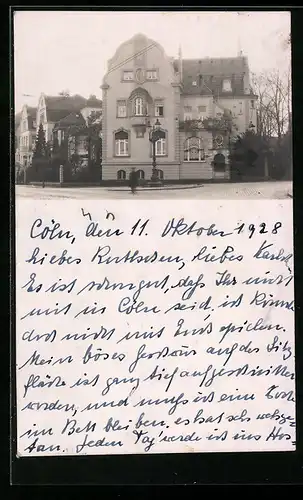 Cöln, den 11. Oktober 1928
Liebes Ruthchen, liebes Karlch
Es ist sehr gut, daß Ihr nicht
mit in Cöln seid, ich könnte
doch nicht mit Euch spielen.
Mein böses Geschwür auf der Sitz
fläche ist ganz tief aufgeschnitten
worden, und muß ich eine Woche
im Bett bleiben, es hat sehr wehge-
tan. Jeden Tag werde ich ins Hos-